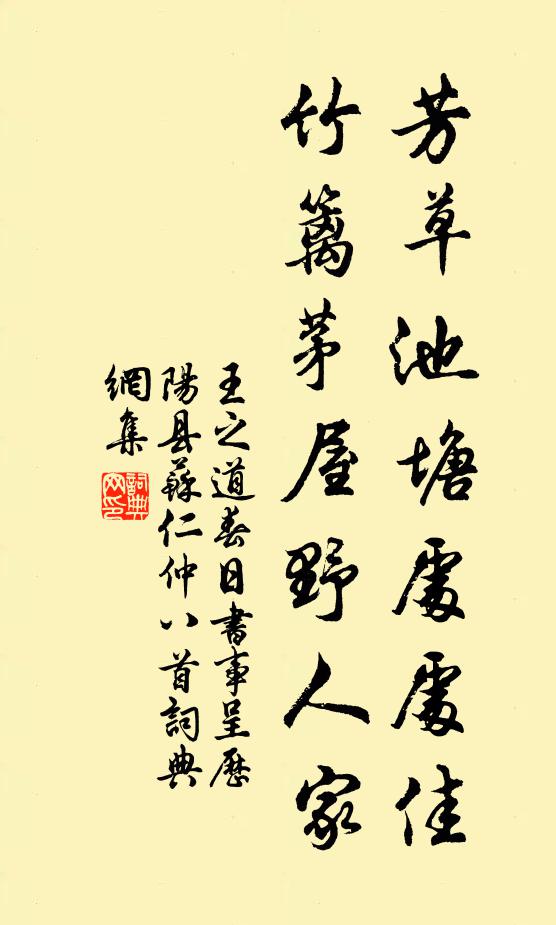 芳草池塘處處佳
竹籬茅屋野人家
王之道春日書事呈歷
陽县蘇仁仲八首詞典
網集
詞典網印